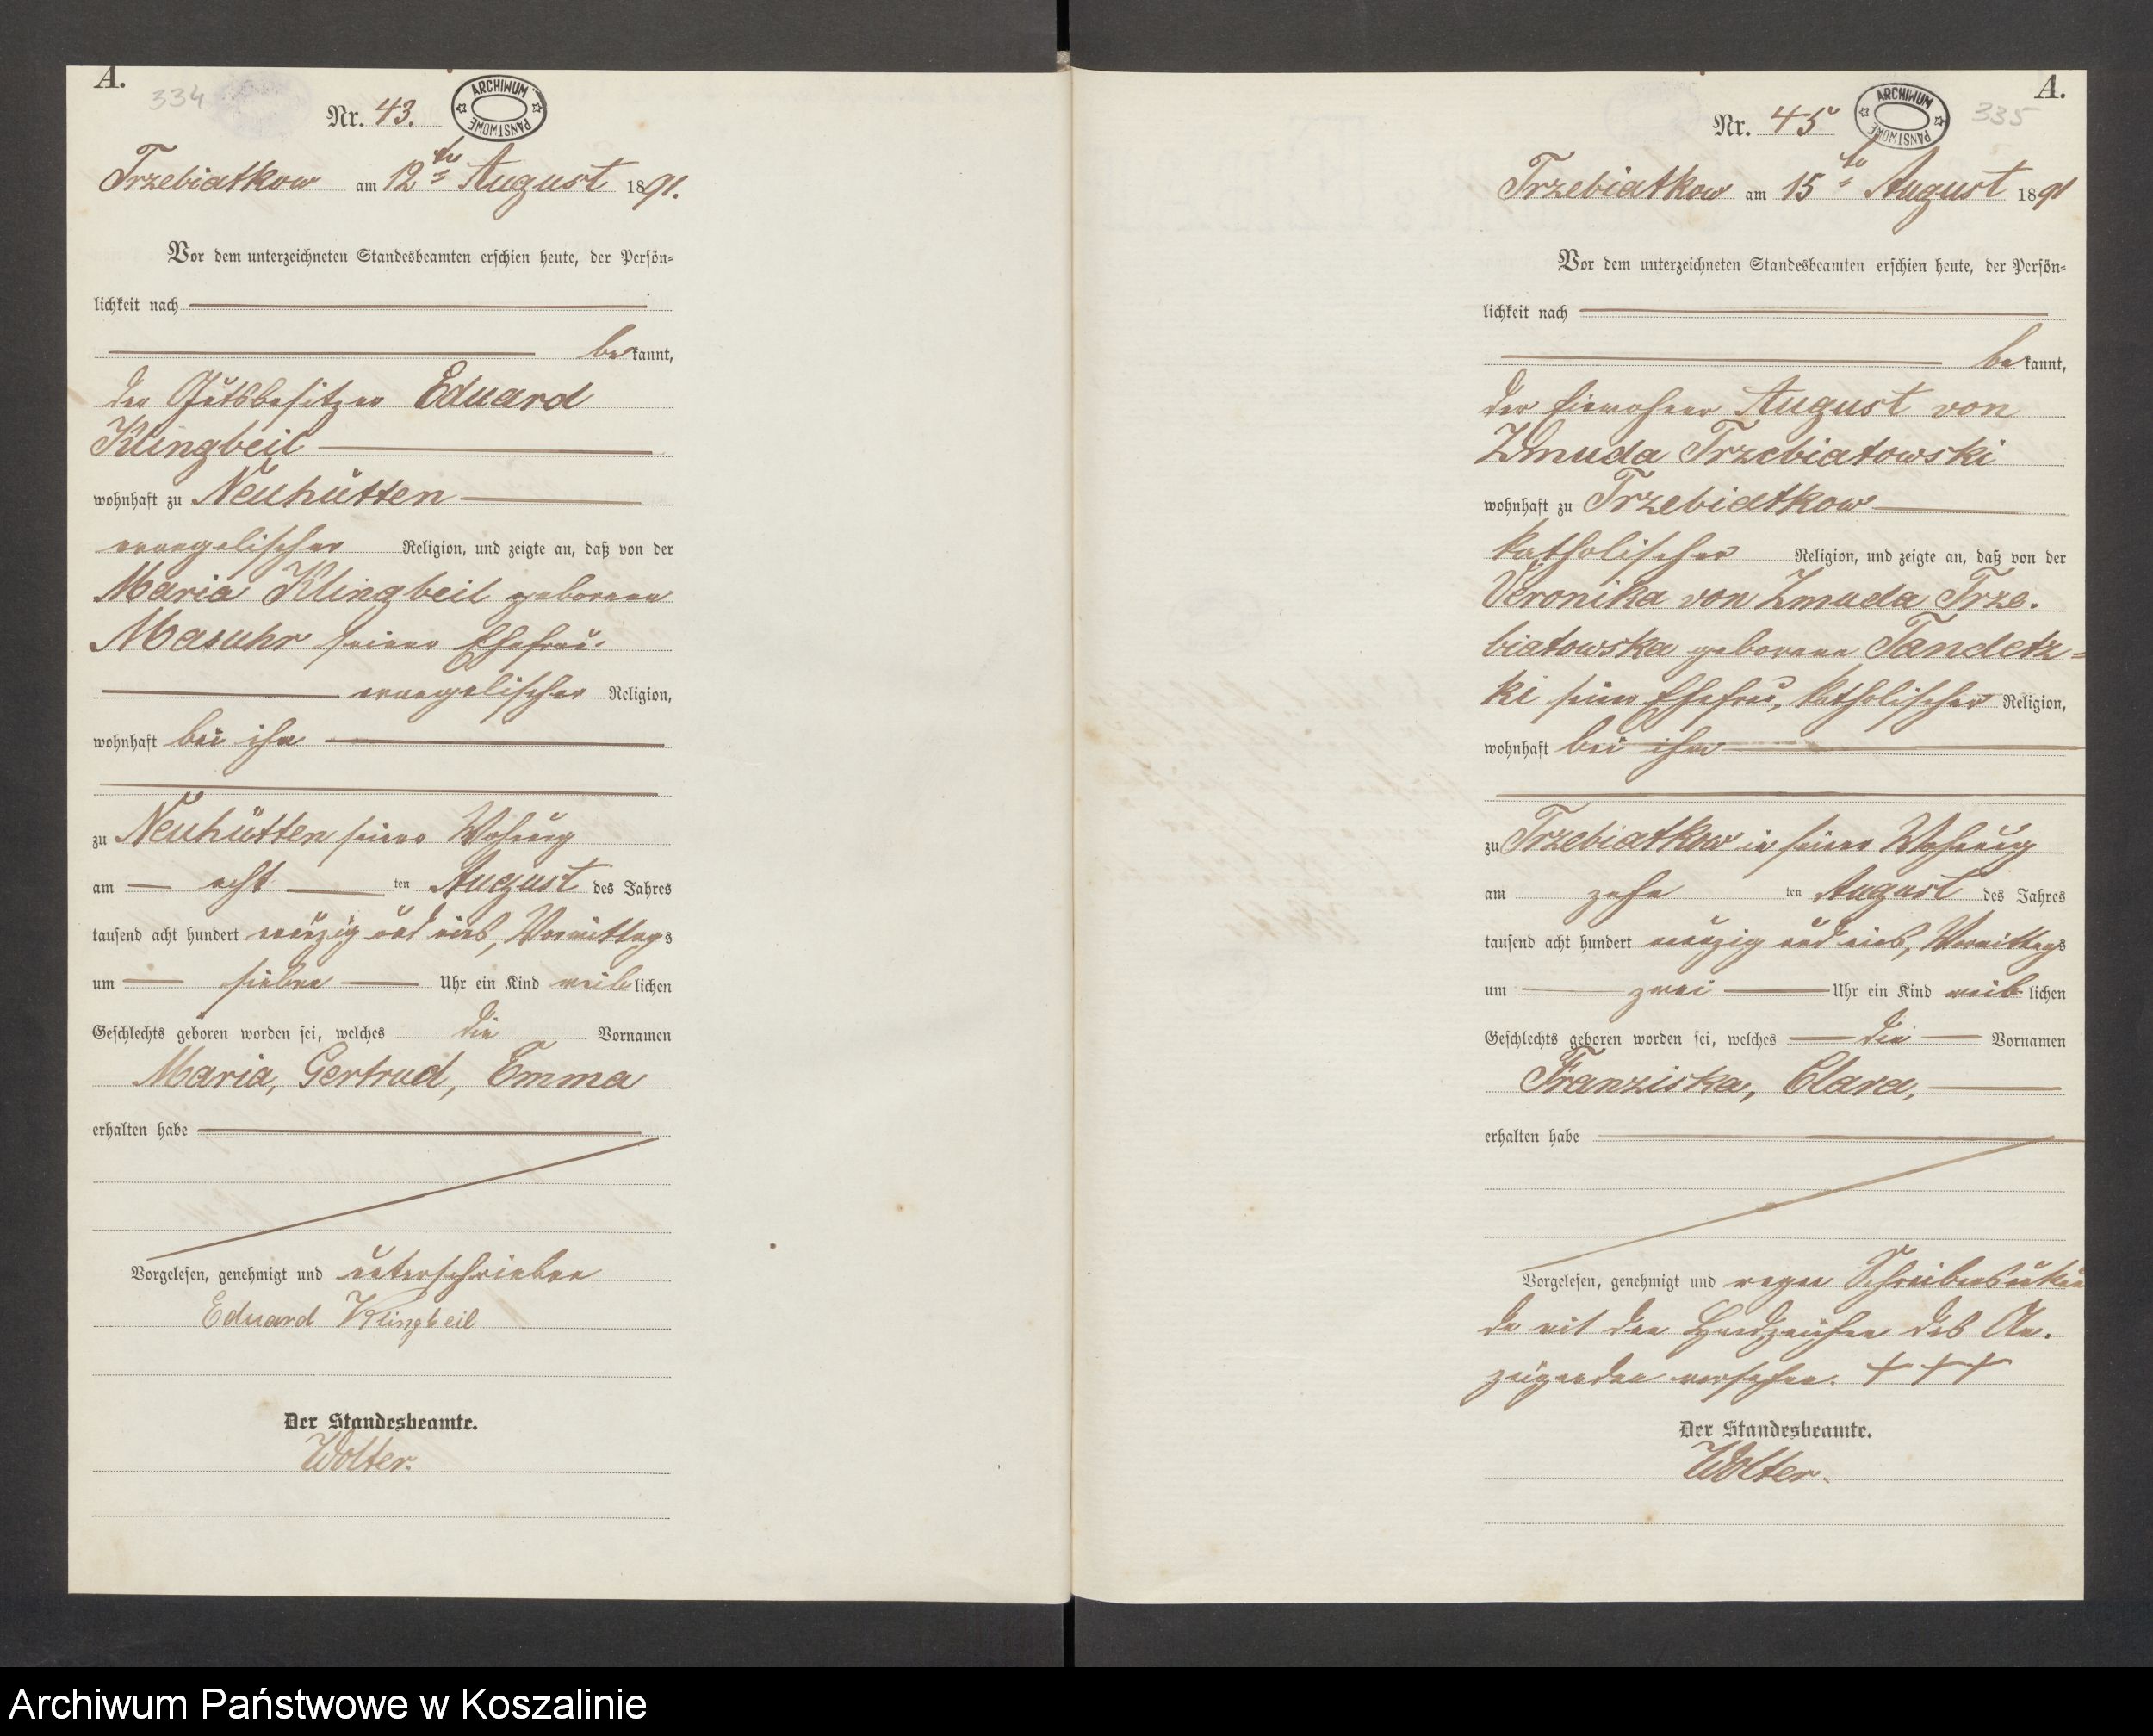 A.
334
Nr. 43.
ARCHIWUM PAŃSTWOWE
Trzebiatkow am 12ten August 1891.
Vor dem unterzeichneten Standesbeamten erschien heute, der Persön=
lichkeit nach
bekannt,
der Gutsbesitzer Eduard
Klingbeil
wohnhaft zu Neuhütten
evangelischer Religion, und zeigte an, daß von der
Maria Klingbeil geborenen
Masuhr seiner Ehefrau
evangelischer Religion,
wohnhaft bei ihm
zu Neuhütten seiner Wohnung
am acht ten August des Jahres
tausend acht hundert neunzig und eins, Vormittags
um sieben Uhr ein Kind weiblichen
Geschlechts geboren worden sei, welches die Vornamen
Maria, Gertrud, Emma
erhalten habe
Vorgelesen, genehmigt und unterschrieben
Eduard Klingbeil
Der Standesbeamte.
Wolter.
A.
335
Nr. 45
ARCHIWUM PAŃSTWOWE
Trzebiatkow am 15ten August 1891
Vor dem unterzeichneten Standesbeamten erschien heute, der Persön=
lichkeit nach
bekannt,
der Einwohner August von
Zmuda Trzebiatowski
wohnhaft zu Trzebiatkow
katholischer Religion, und zeigte an, daß von der
Veronika von Zmuda Trze.
biatowska geborenen Tandetz=
ki seiner Ehefrau, katholischer Religion,
wohnhaft bei ihm
zu Trzebiatkow in seiner Wohnung
am zehn ten August des Jahres
tausend acht hundert neunzig und eins, Vormittags
um zwei Uhr ein Kind weiblichen
Geschlechts geboren worden sei, welches die Vornamen
Franziska, Clara,
erhalten habe
Vorgelesen, genehmigt und wegen Schreibensunkun
de mit den Handzeichen des An.
zeigenden versehen. + + +
Der Standesbeamte.
Wolter.
Archiwum Państwowe w Koszalinie